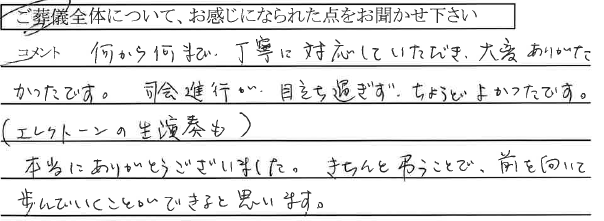 ご葬儀全体について、お感じになられた点をお聞かせ下さい
コメント 何から何まで、丁寧に対応していただき、大変ありがた
かったです。 司会進行が、目立ち過ぎず、ちょうどよかったです。
(エレクトーンの生演奏も)
本当にありがとうございました。 きちんと弔うことで、前を向いて
歩んでいくことができると思います。